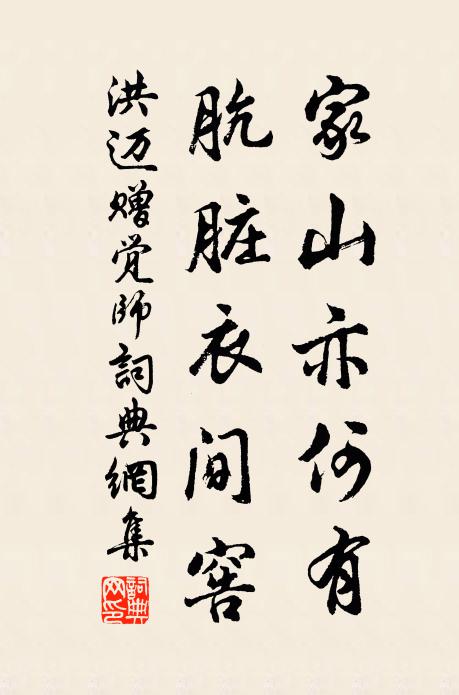 家山亦何有
肮脏衣间窖
洪迈赠觉师詞典網集
詞典网印